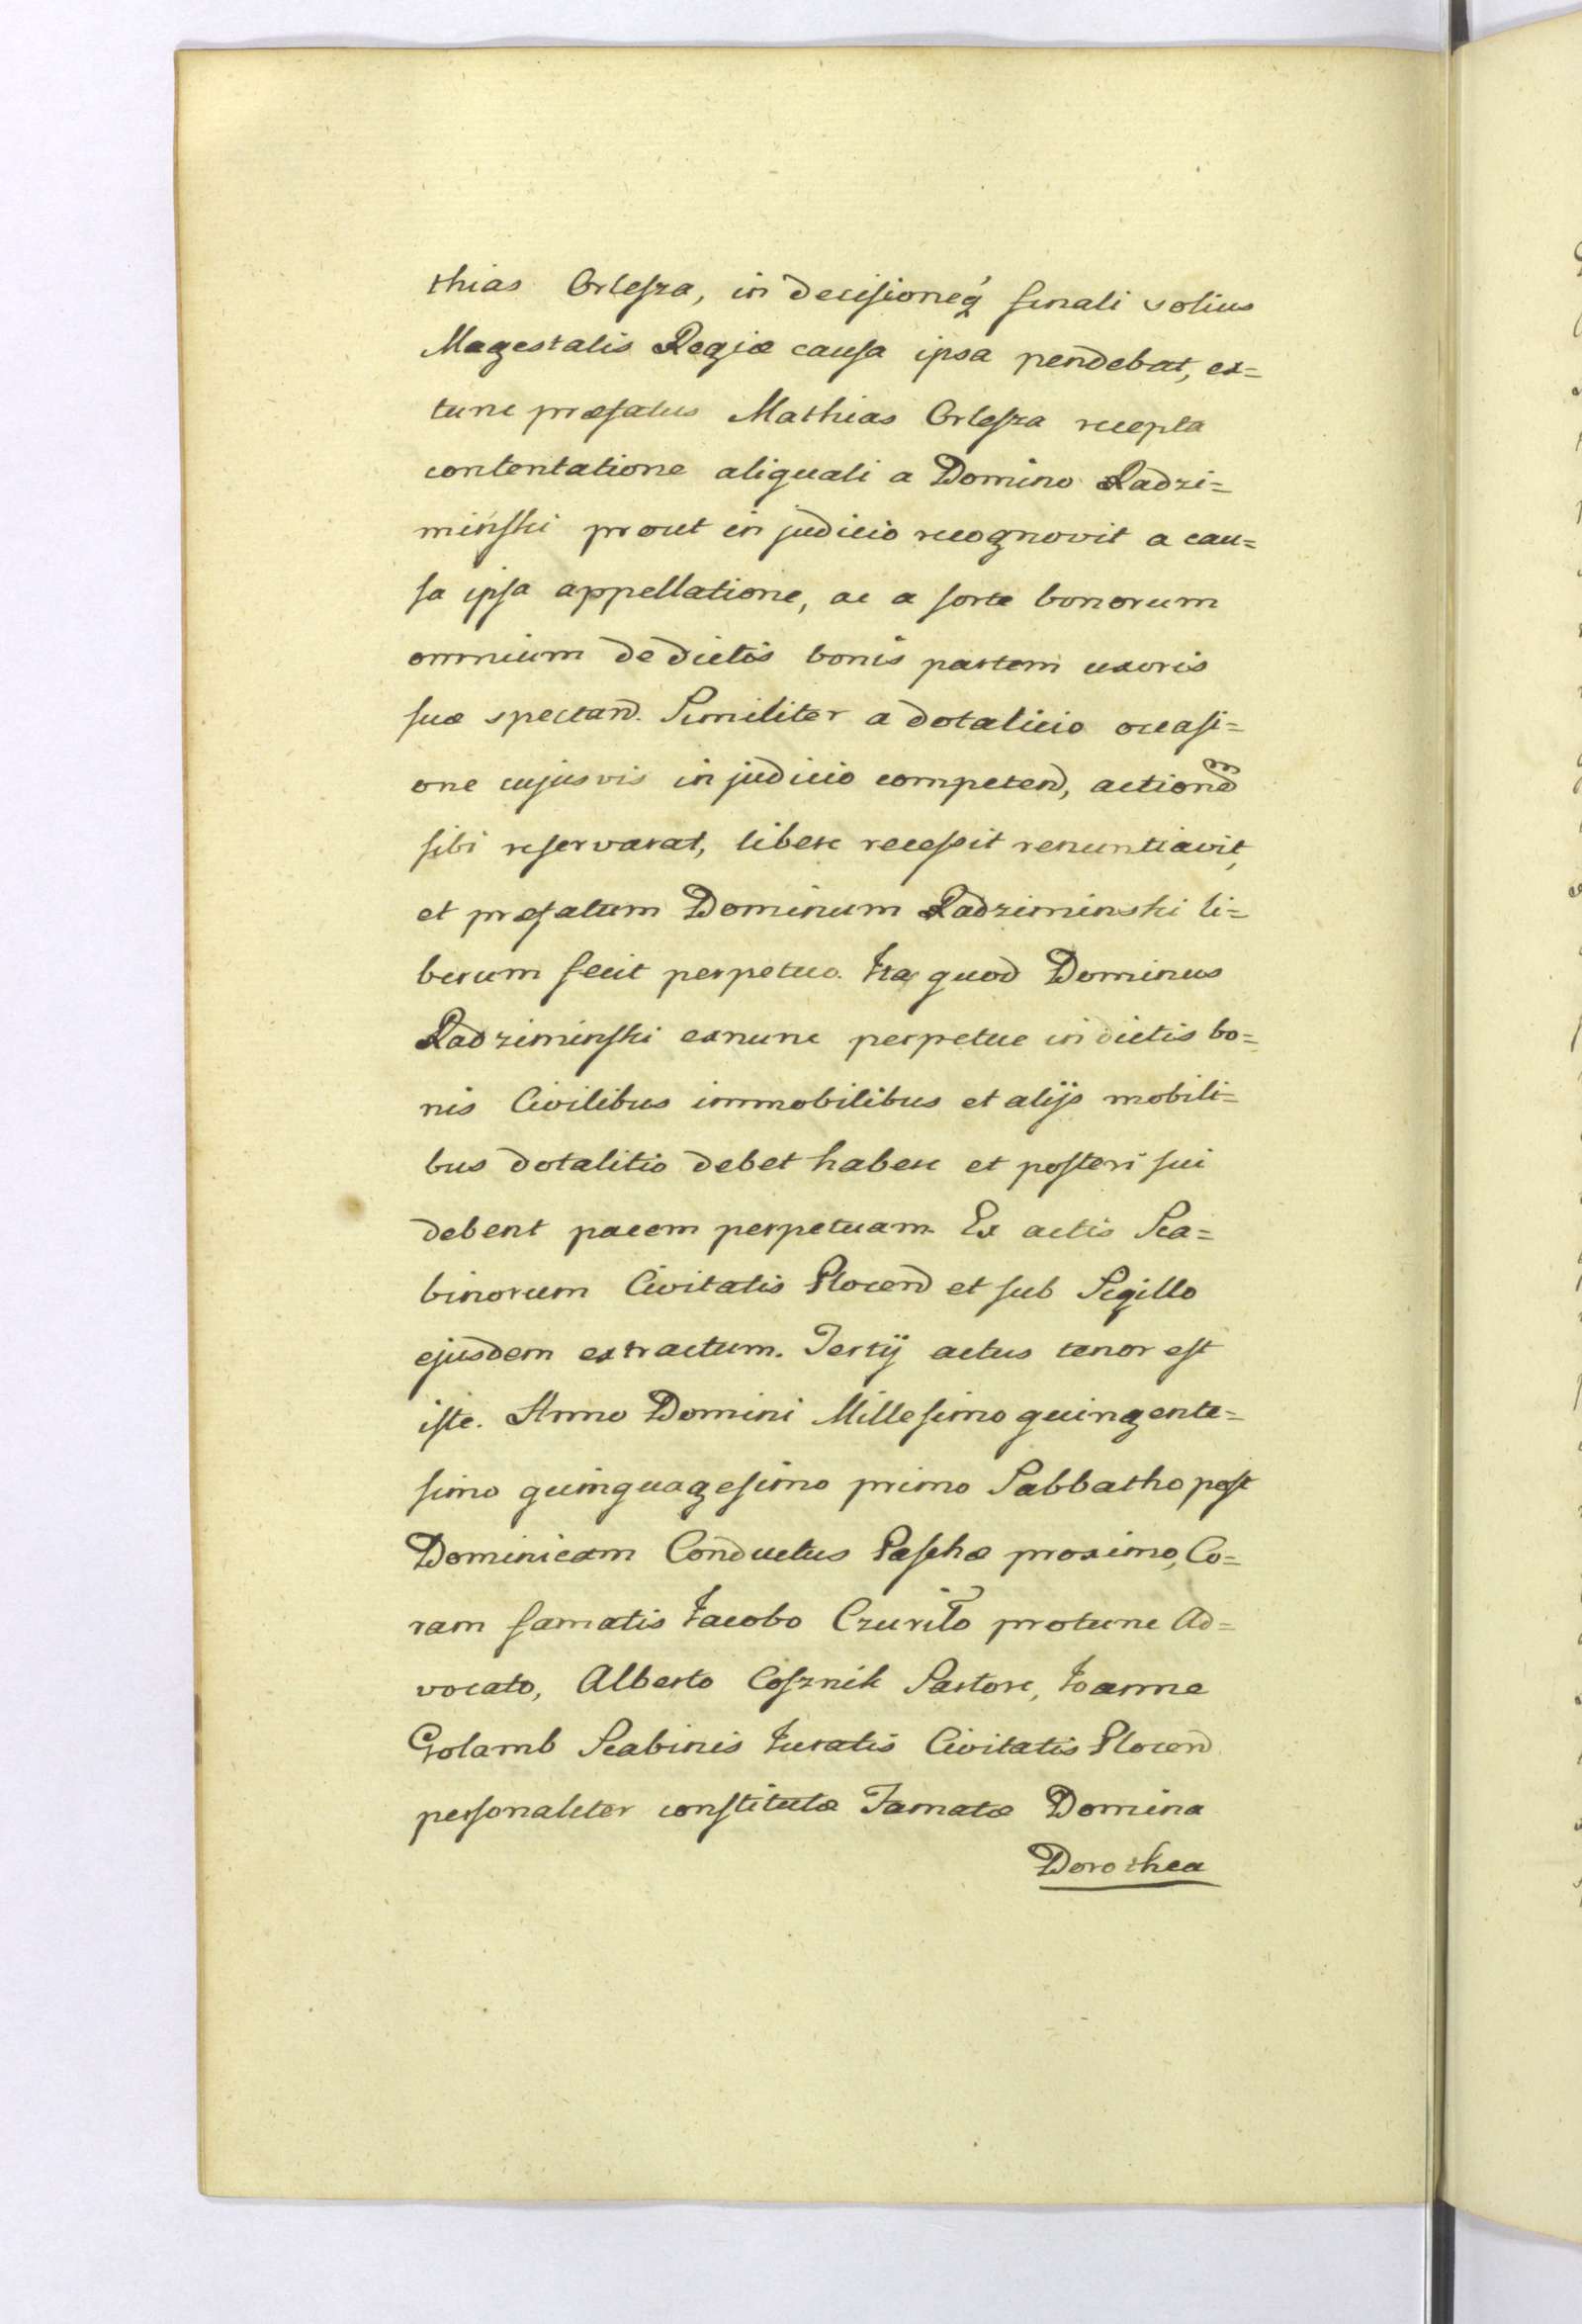 thias Orlesza, in decisioneq́ finali solius
Magestatis Regiæ causa ipsa pendebat, ex=
tunc præfatus Mathias Orlesza recepta
contentatione aliquali a Domino Radzi=
miński prout in judicio recognovit a cau=
sa ipsa appellatione, ac a sorte bonorum
omnium de dictis bonis partem uxoris
suæ spectand. Similiter a dotalicio occasi=
one cujusvis in judicio competend, actionem
sibi reservarat, libere recessit renuntiavit,
et præfatum Dominum Radziminski li=
berum fecit perpetuo. Ita quod Dominus
Radziminski exnunc perpetue in dictis bo=
nis Civilibus immobilibus et alijs mobili=
bus dotalitio debet habere et posteri sui
debent pacem perpetuam. Ex actis Sca=
binorum Civitatis Plocend et sub Sigillo
ejusdem extractum. Tertij actus tenor est
iste. Anno Domini Millesimo quingente=
simo quinquagesimo primo Sabbatho post
Dominicam Conductus Paschæ proximo, Co=
ram famatis Iacobo Czuriło protunc Ad=
vocato, Alberto Cosznik Sartore, Ioanne
Golamb Scabinis Iuratis Civitatis Plocend
personaliter constitutæ Famatæ Domina
Dorothea